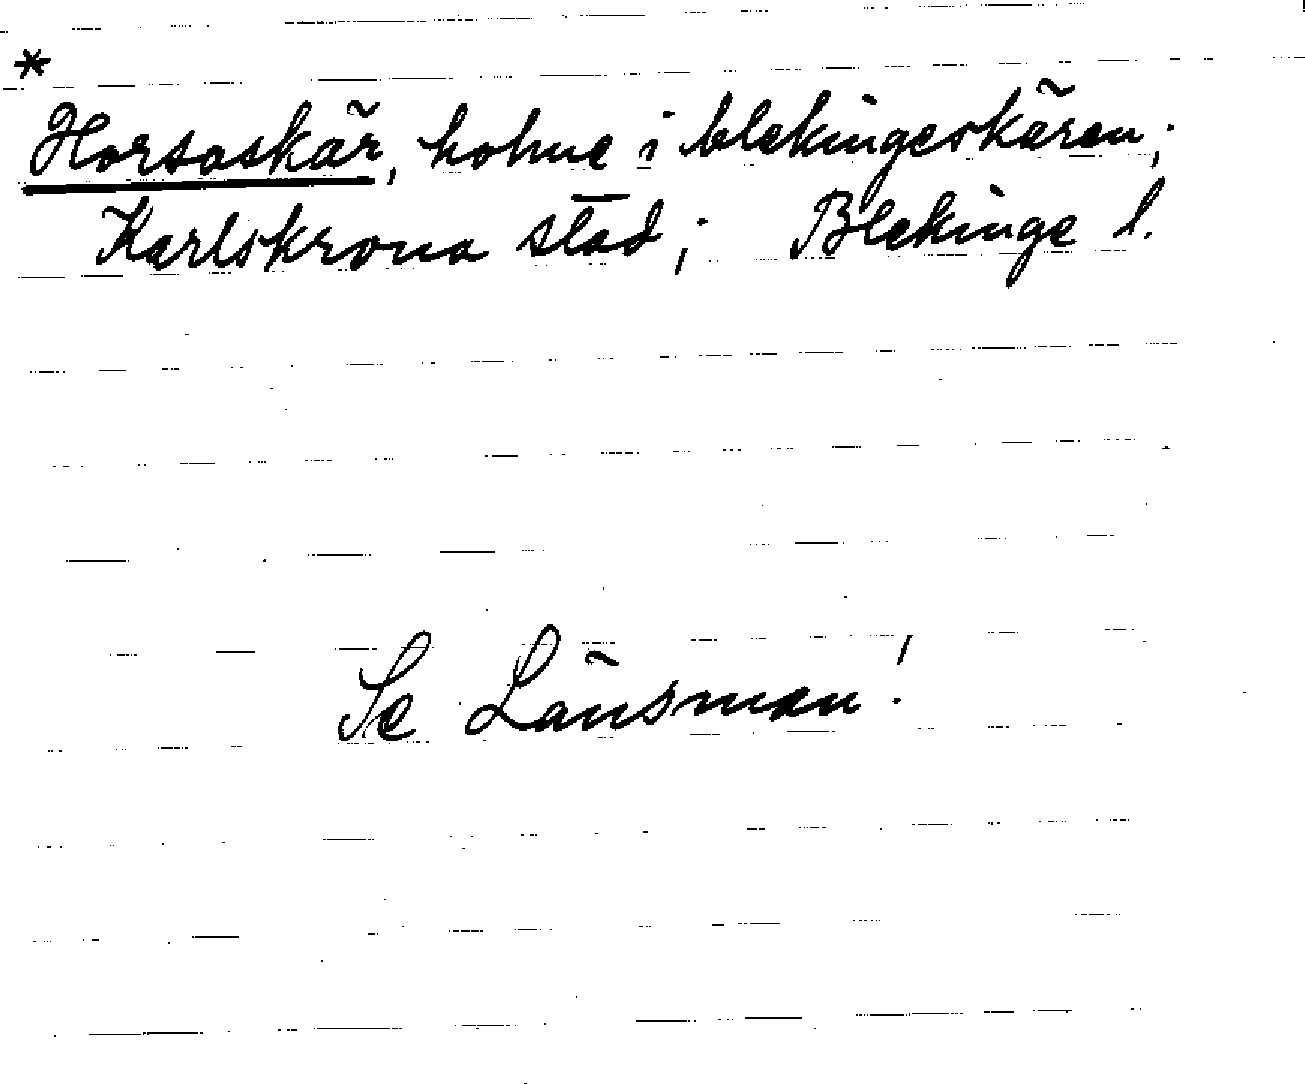 *
Horsaskär, holme i blekingeskären;
Karlskrona stad; Blekinge l.
Se Länsman!